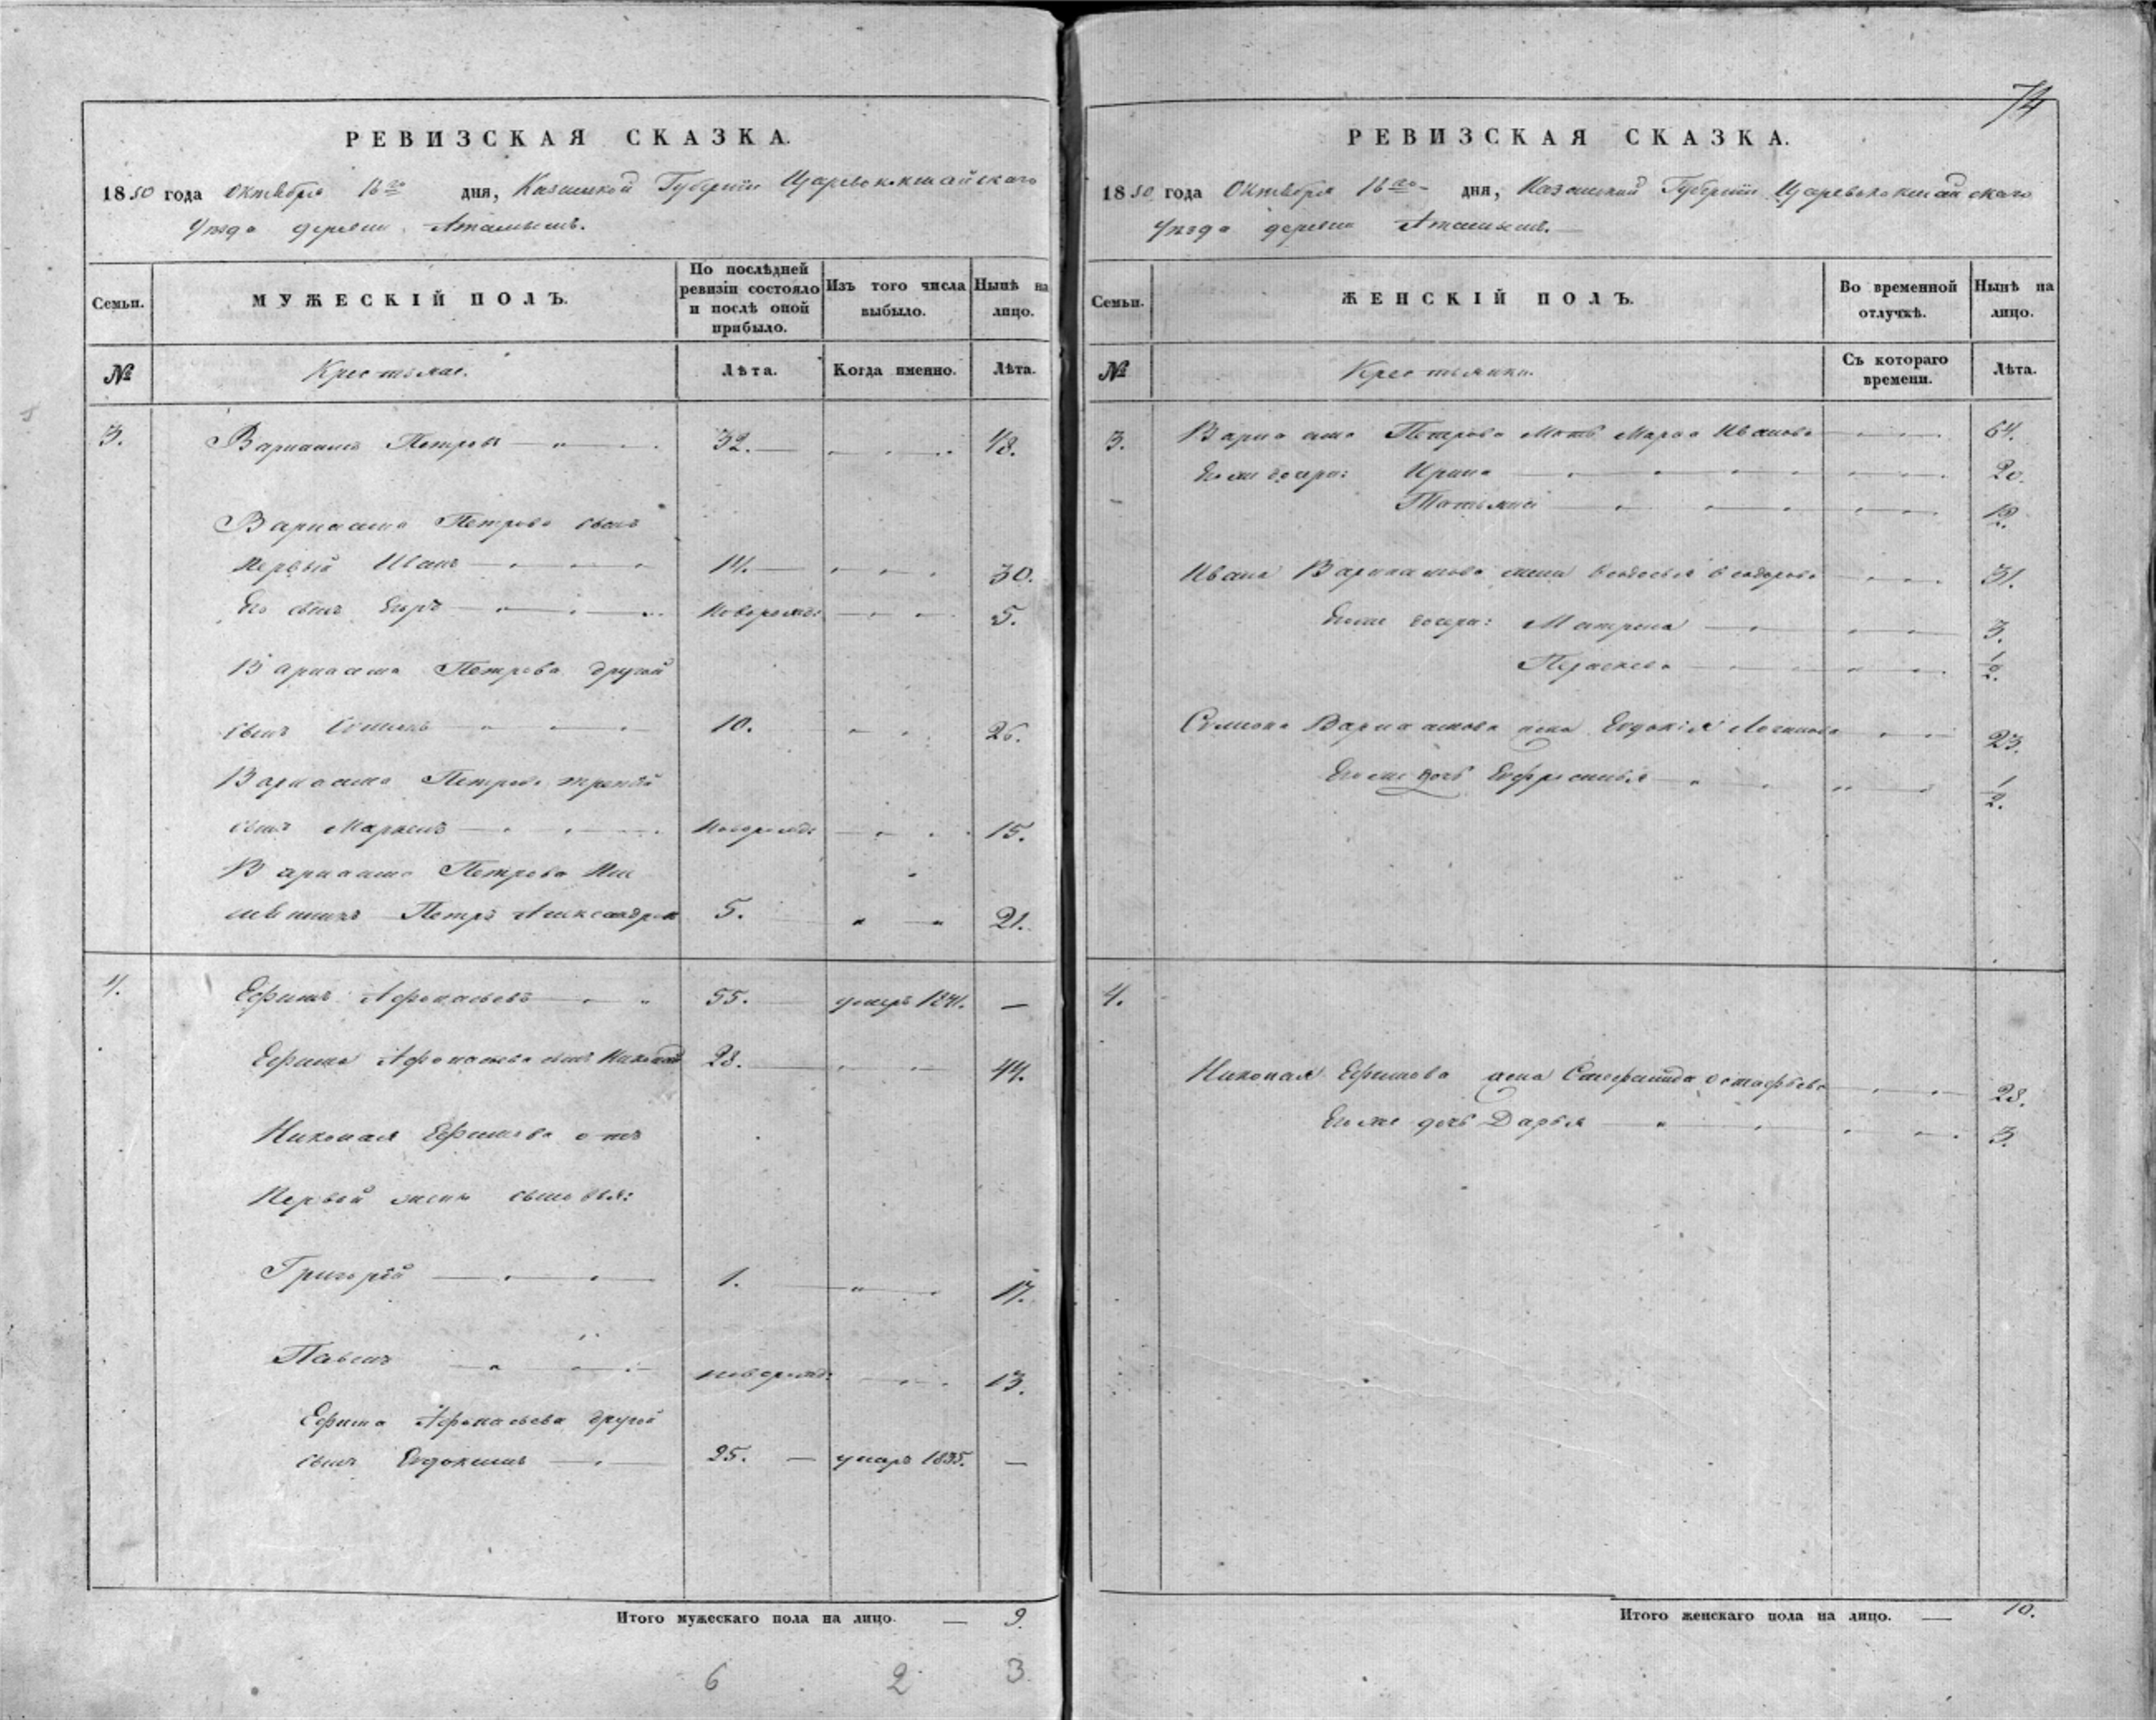 74
РЕВИЗСКАЯ СКАЗКА.
1850 года Октября 16го дня, Казанской Губернiи Царевококшайскаго
уѣзда деревни Аталышъ.
Семьи.
МУЖЕСКІЙ ПОЛЪ.
По послѣдней ревизіи состояло и послѣ оной прибыло.
Изъ того числа выбыло.
Нынѣ на лицо.
№
Крестьяне.
Лѣта.
Когда именно.
Лѣта.
3. Варламъ Петровъ 32. 48.
Варлама Петрова сынъ
первый Иванъ 14. 30.
Его сынъ Егоръ новорожд: 5.
Варлама Петрова другой
сынъ Семенъ 10. 26.
Варлама Петрова третій
сынъ новорожд: 15.
Варлама Петрова
Петръ Александровъ 5. 21.
4. Ефимъ Афонасьевъ 55. умеръ 1841. —
Ефима Афонасьева сынъ Николай 28. 44.
Николая Ефимова отъ
первой жены сыновья:
Григорій 1. 17.
Павелъ новорожд: 13.
Ефима Афонасьева другой
сынъ Евдокимъ 25. — умеръ 1835. —
Итого мужескаго пола на лицо. — 9.
6 2 3
РЕВИЗСКАЯ СКАЗКА.
1850 года Октября 16го дня, Казанской Губернiи Царевококшайскаго
уѣзда деревни Аталышъ.
Семьи.
ЖЕНСКІЙ ПОЛЪ.
Во временной отлучкѣ.
Нынѣ на лицо.
№
Крестьянки.
Съ котораго времени.
Лѣта.
3. Варлама Петрова мать Марфа Иванова 64.
Его же дочери: Ирина 20.
Татьяна 12.
Ивана Варламова жена Ѳедосья Ѳедорова 31.
Его же дочери: Матрена 3.
Парасковья 1/2.
Семена Варламова жена Евдокія 23.
Его же дочь Ефросинья 1/2.
4.
Николая Ефимова жена Остафьева 28.
Его же дочь Дарья 3.
Итого женскаго пола на лицо. — 10.